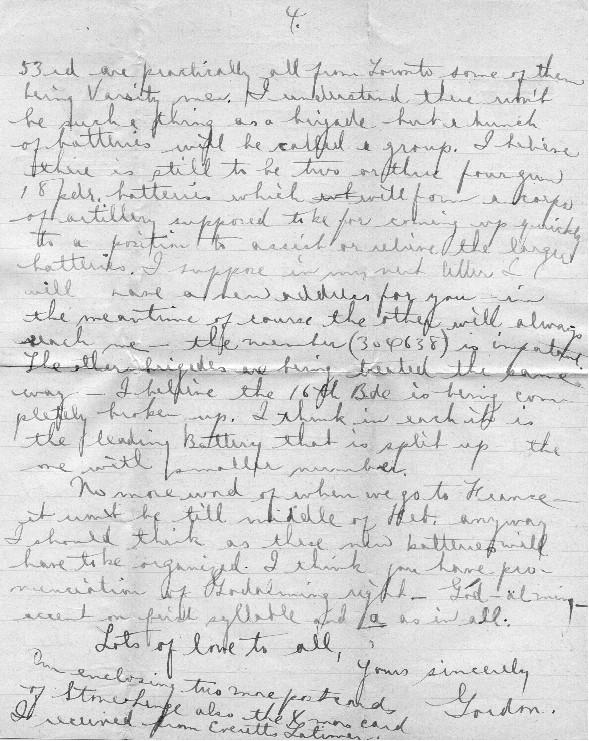 4.
53rd are practically all from Toronto some of them
being Varsity men. I understand there won't
be such a thing as a brigade but a bunch
of batteries will be called a group. I believe
there is still to be two or three four gun
18 pdr. batteries which will form a corps
of artillery supposed to be for coming up quickly
to a position to assist or relieve the larger
batteries. I suppose in my next letter I
will have a new address for you - in
the meantime of course the other will always
reach me - the number (304638) is important.
The other brigades are being treated the same
way - I believe the 16th Bde is being com
pletely broken up. I think in each it is
the leading Battery that is split up the
one with smaller number.
No more word of when we go to France -
it won't be till middle of Feb. anyway
I should think as these new batteries will
have to be organized. I think you have pro-
nunciation of Godalming right - God-al-ming -
accent on first syllable and a as in all.
Lots of love to all,
Yours sincerely
Gordon.
Am enclosing two more postcards
of Stonehenge also the Xmas card
I received from Everetts Latimer.